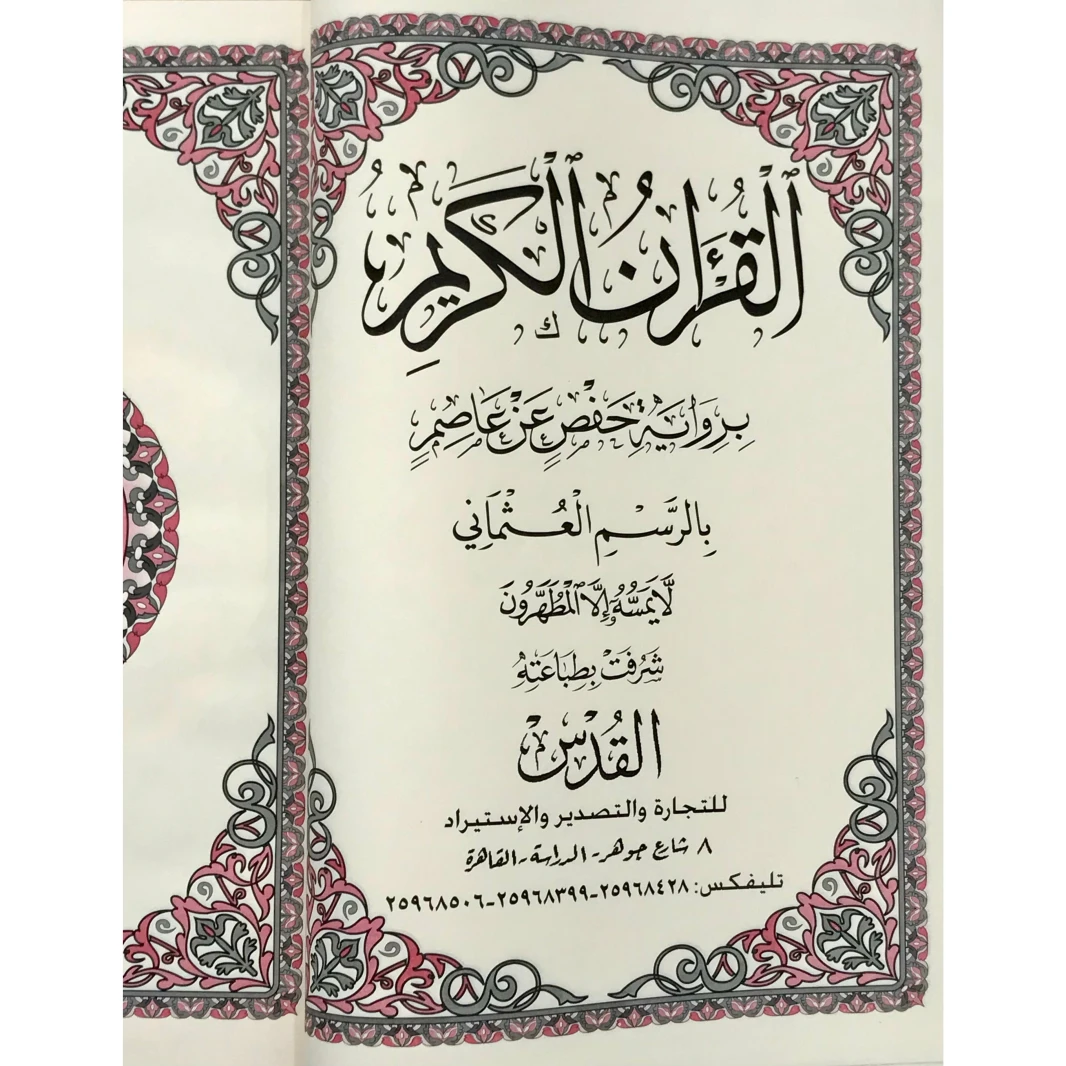 ٱلْقُرْءَانُ ٱلْكَرِيمُ
بِرِوَايَةِ حَفْصٍ عَنْ عَاصِمٍ
بِالرَّسْمِ الْعُثْمَانِي
لَّا يَمَسُّهُۥٓ إِلَّا ٱلْمُطَهَّرُونَ
شَرُفَتْ بِطِبَاعَتِهِ
القُدْس
للتجارة والتصدير والإستيراد
٨ شارع جوهر - الدراسة - القاهرة
تليفكس: ٢٥٩٦٨٤٢٨-٢٥٩٦٨٣٩٩-٢٥٩٦٨٥٠٦